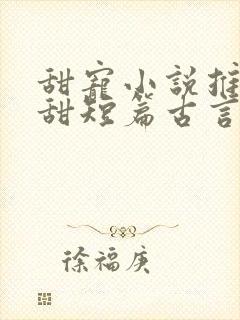 甜寵小説推
甜短篇古言
徐福庚